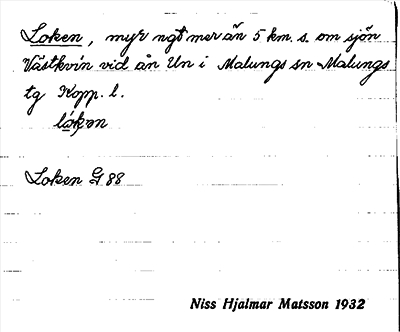 Loken, myr ngt mer än 5 km. s. om sjön
Västkvin vid ån Un i Malungs sn Malungs
tg Kopp. l.
lókən
Loken G 88
Niss Hjalmar Matsson 1932